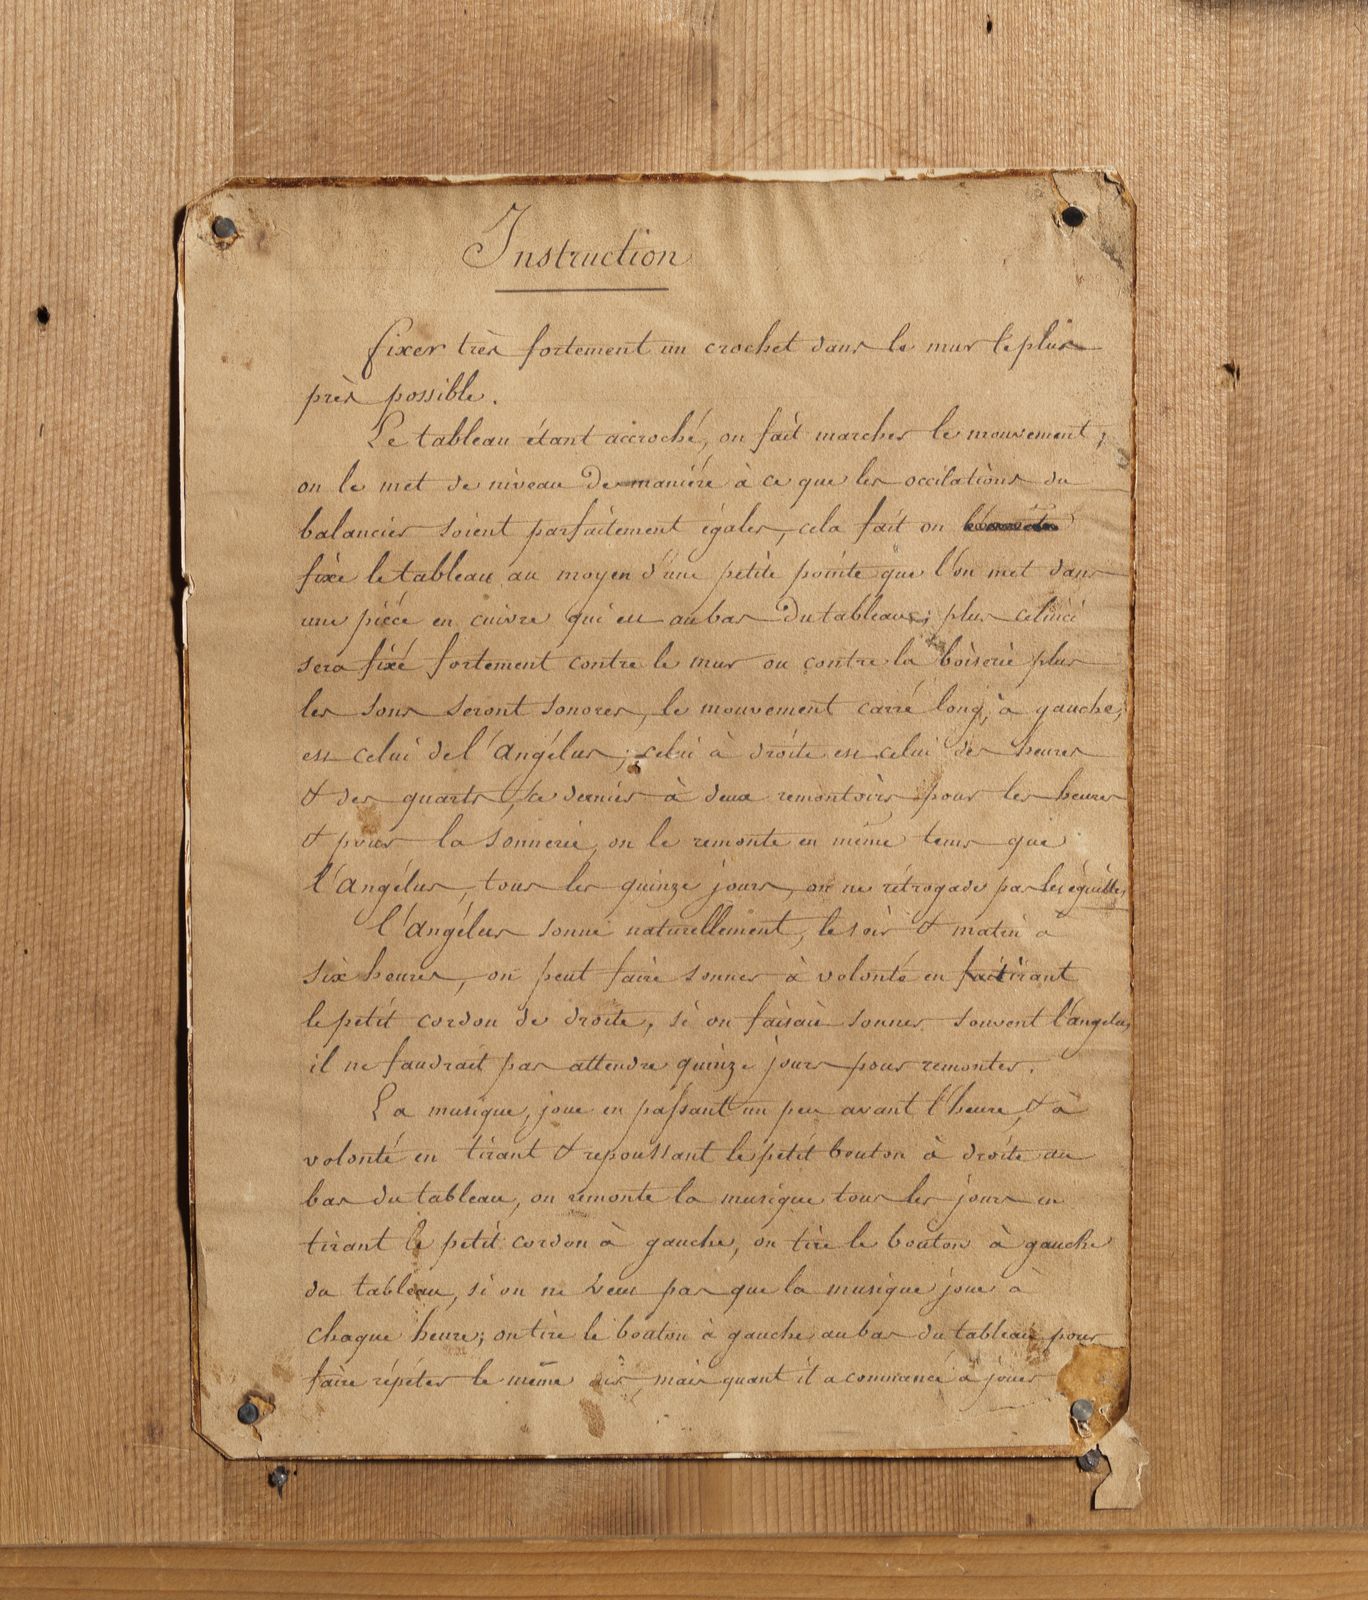 Instruction
fixer très fortement un crochet dans le mur le plus
près possible.
Le tableau étant accroché, on fait marcher le mouvement,
on le met de niveau de manière à ce que les occilations du
balancier soient parfaitement égales, cela fait on
fixe le tableau au moyen d'une petite pointe que l'on met dans
une pièce en cuivre qui est au bas du tableau; plus celuici
sera fixé fortement contre le mur ou contre la boiserie plus
les sons seront sonores, le mouvement carré long, à gauche,
est celui de l'Angélus; celui à droite est celui des heures
& des quarts, ce dernier à deux remontoirs pour les heures
& pour la sonnerie, on le remonte en même tems que
l'Angélus, tous les quinze jours, on ne rétrogade pas les éguilles,
l'Angélus sonne naturellement, le soir & matin à
six heures, on peut faire sonner à volonté en tirant
le petit cordon de droite, si on faisait sonner souvent l'angelus,
il ne faudrait pas attendre quinze jours pour remonter.
La musique, joue en passant un peu avant l'heure, & à
volonté en tirant & repoussant le petit bouton à droite au
bas du tableau, on remonte la musique tous les jours en
tirant le petit cordon à gauche, on tire le bouton à gauche
du tableau, si on ne veut pas que la musique joue à
chaque heure; on tire le bouton à gauche au bas du tableau pour
faire répéter le même air, mais quant il a commancé à jouer